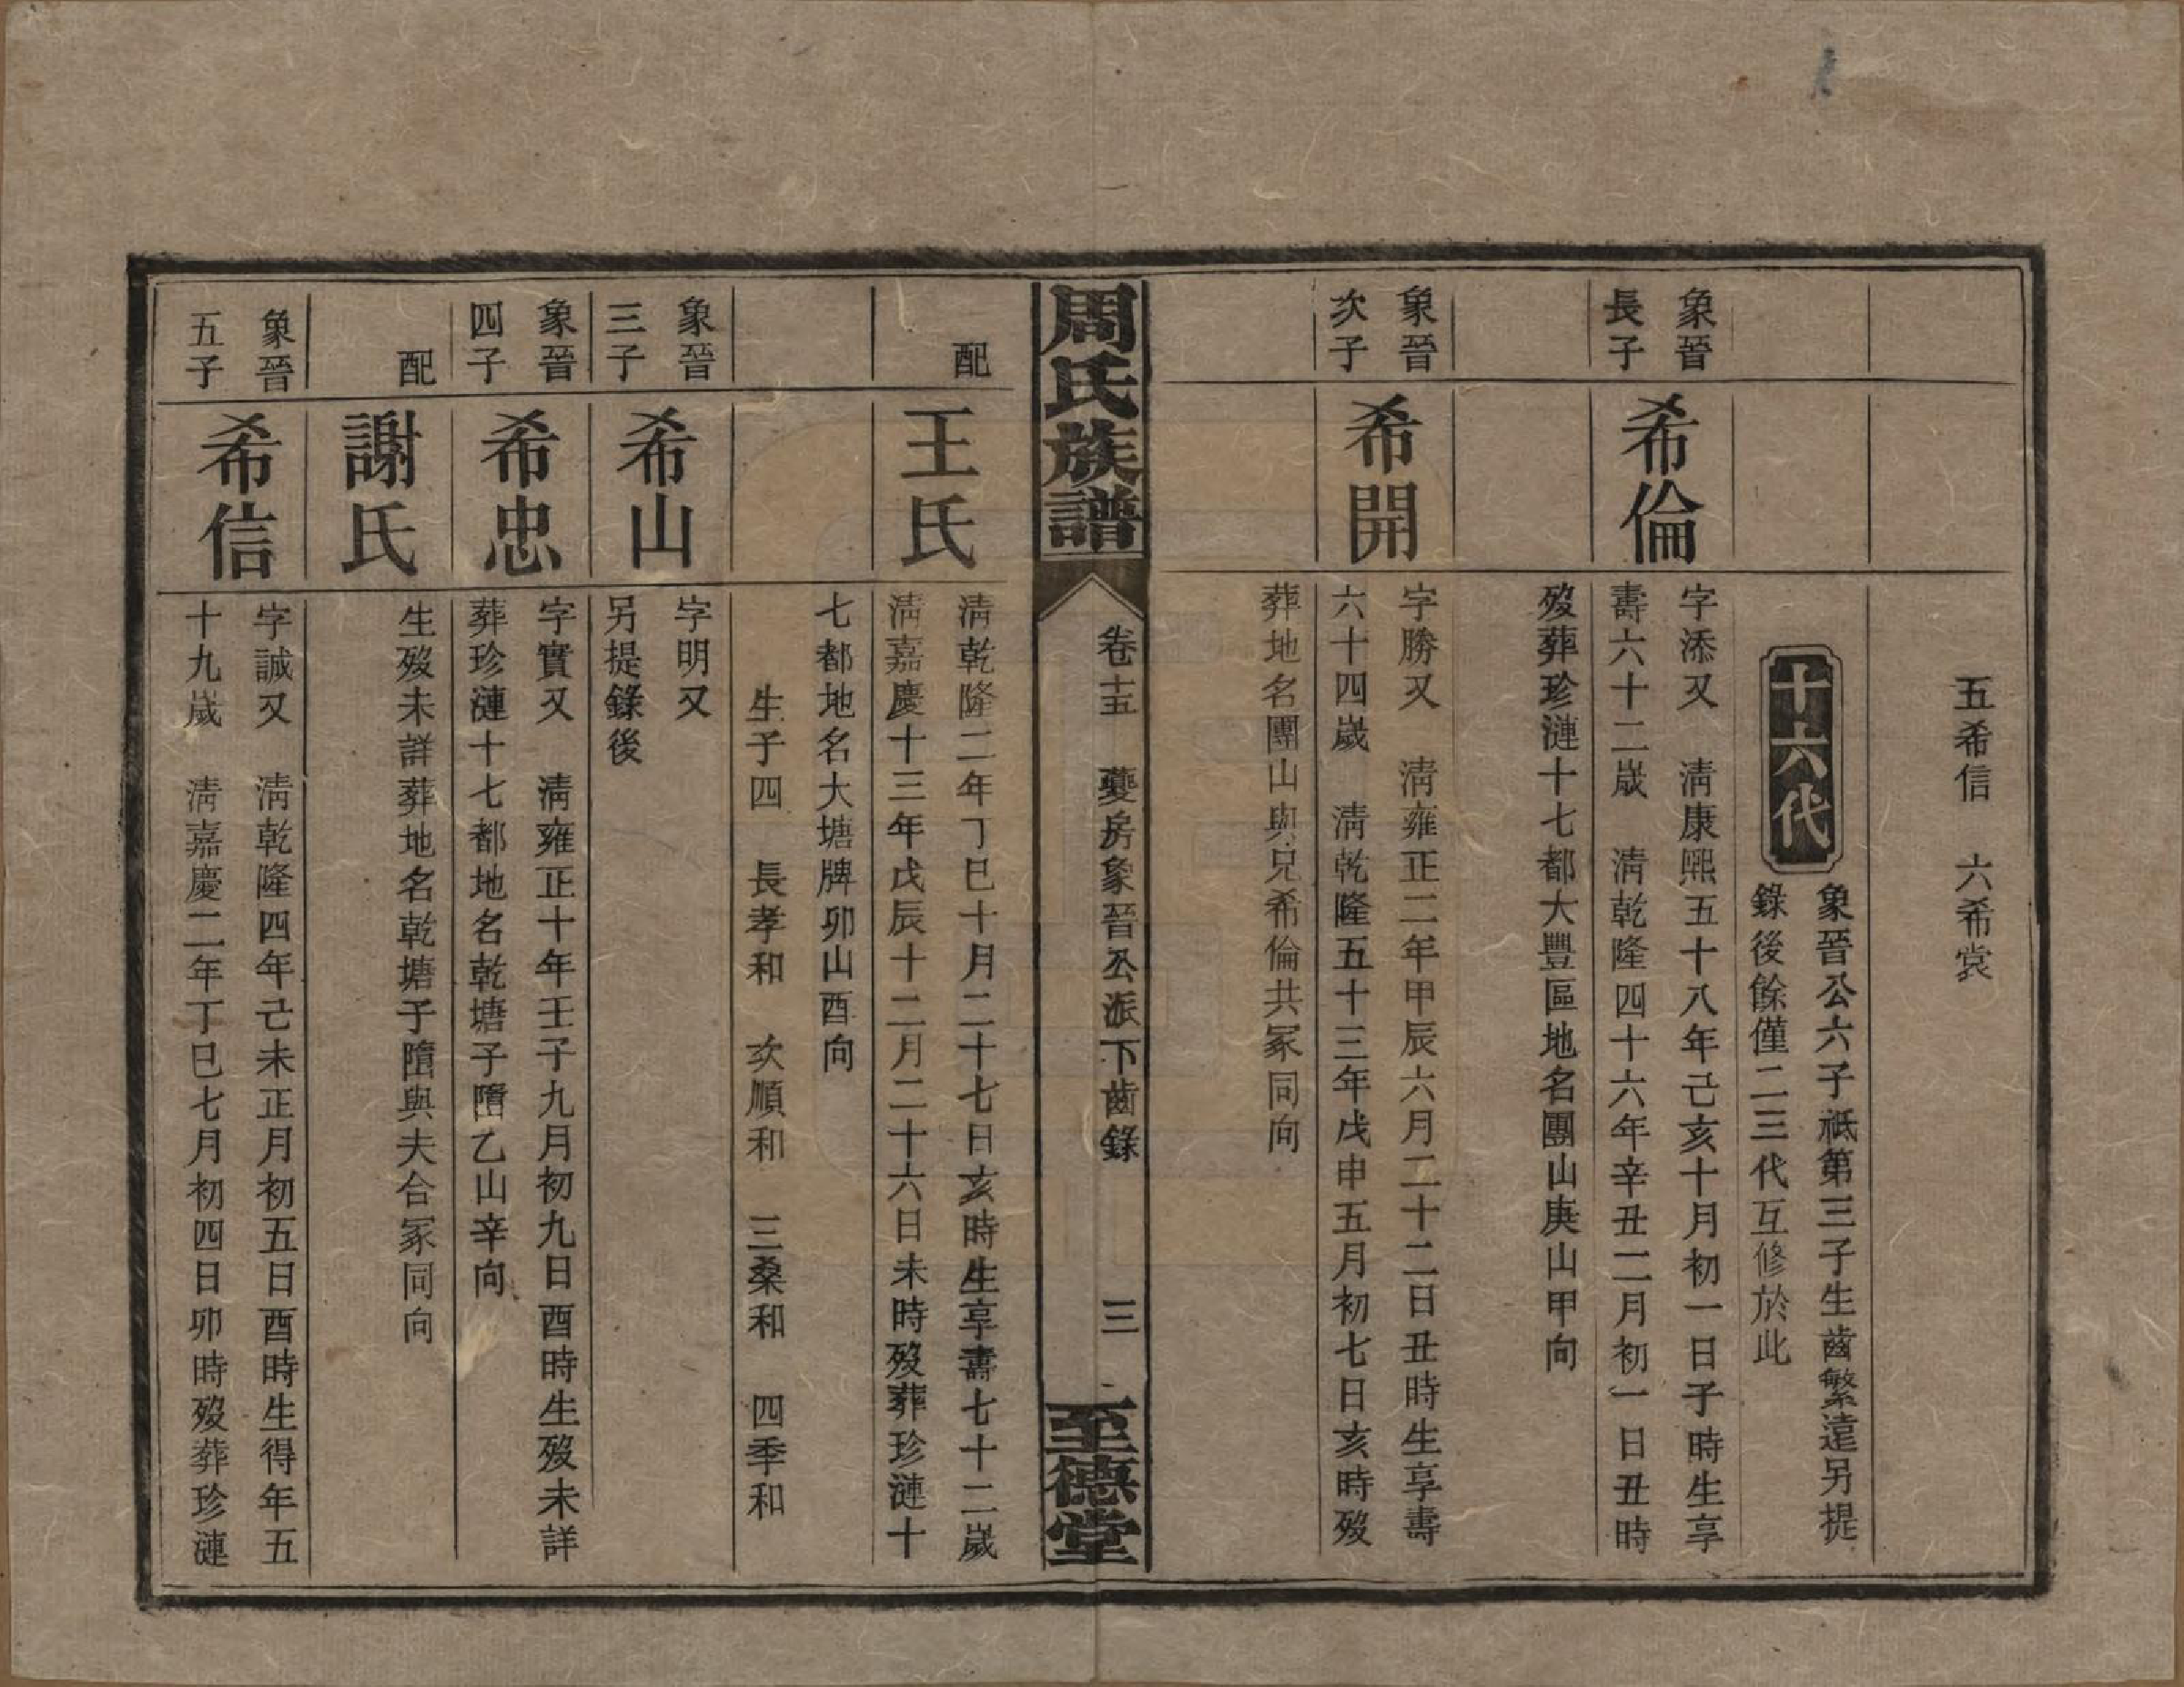 五希信　六希裳
十六代
象晉公六子祗第三子生齒繁遠另提
錄後餘僅二三代互修於此
象晉
長子
希倫
字添又　淸康熙五十八年己亥十月初一日子時生享
壽六十二歲　淸乾隆四十六年辛丑二月初一日丑時
歿葬珍漣十七都大豐區地名團山庚山甲向
象晉
次子
希開
字勝又　淸雍正二年甲辰六月二十二日丑時生享壽
六十四歲　淸乾隆五十三年戊申五月初七日亥時歿
葬地名團山與兄希倫共冢同向
周氏族譜
卷十五　夔房象晉公派下齒錄　三
至德堂
配
王氏
淸乾隆二年丁巳十月二十七日亥時生享壽七十二歲
淸嘉慶十三年戊辰十二月二十六日未時歿葬珍漣十
七都地名大塘牌卯山酉向
生子四　長孝和　次順和　三桑和　四季和
象晉
三子
希山
字明又
另提錄後
象晉
四子
希忠
字實又　淸雍正十年壬子九月初九日酉時生歿未詳
葬珍漣十七都地名乾塘子隋乙山辛向
配
謝氏
生歿未詳葬地名乾塘子隋與夫合冢同向
象晉
五子
希信
字誠又　淸乾隆四年己未正月初五日酉時生得年五
十九歲　淸嘉慶二年丁巳七月初四日卯時歿葬珍漣